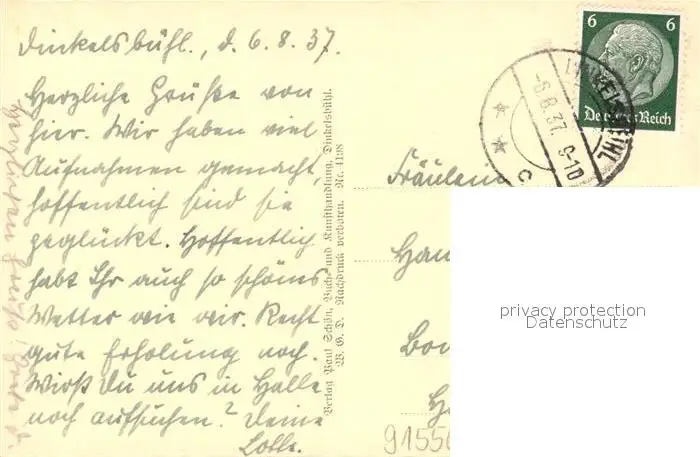 Dinkelsbühl., d. 6.8.37.
Herzliche Grüße von
hier. Wir haben viel
Aufnahmen gemacht,
hoffentlich sind sie
geglückt. Hoffentlich
habt Ihr auch so schönes
Wetter wie wir. Recht
gute Erholung noch.
Wirst Du uns in Halle
noch aufsuchen? Deine
Lotte.
Verlag Paul Schön, Buch- und Kunsthandlung, Dinkelsbühl.
W. G. D. Nachdruck verboten. Nr. 4198
6 6
Deutsches Reich
DINKELSBÜHL
-6.8.37. 9-10
c
Fräulein
Han
Bo
H
9155
privacy protection
Datenschutz